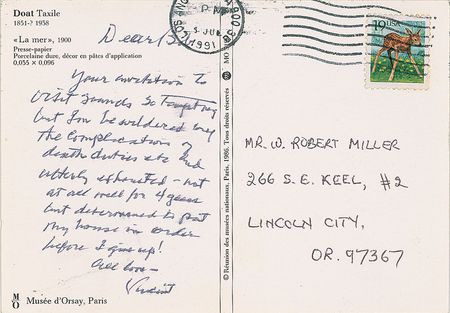 Doat Taxile
1851-? 1938
«La mer», 1900
Presse-papier
Porcelaine dure, décor en pâtes d'application
0,055 × 0,096
Dear
Your invitation to
visit sounds so tempting
but I'm bewildered by
the complications of
death duties etc and
utterly exhausted - not
at all well for 4 years
but determined to put
my house in order
before I give up!
All love -
Vincent
MO Musée d'Orsay, Paris
© Réunion des musées nationaux, Paris, 1986. Tous droits réservés
LOS ANG
PM
3 JUL
1991
19 USA
MR. W. ROBERT MILLER
266 S.E. KEEL, #2
LINCOLN CITY,
OR. 97367